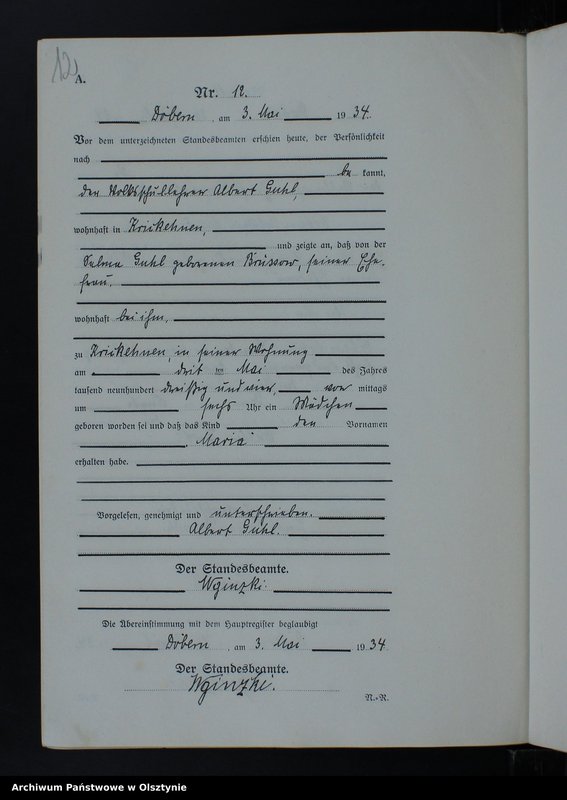 12
A.
Nr. 12.
Döbern, am 3. Mai 1934.
Vor dem unterzeichneten Standesbeamten erschien heute, der Persönlichkeit
nach
be kannt,
der Volksschullehrer Albert Guhl,
wohnhaft in Krickehnen,
und zeigte an, daß von der
Selma Guhl geborenen Brüssow, seiner Ehe-
frau,
wohnhaft bei ihm,
zu Krickehnen, in seiner Wohnung
am drit ten Mai des Jahres
tausend neunhundert dreißig und vier, vor mittags
um sechs Uhr ein Mädchen
geboren worden sei und daß das Kind den Vornamen
Maria
erhalten habe.
Vorgelesen, genehmigt und unterschrieben.
Albert Guhl.
Der Standesbeamte.
Die Übereinstimmung mit dem Hauptregister beglaubigt
Döbern, am 3. Mai 1934.
Der Standesbeamte.
N.-R.
Archiwum Państwowe w Olsztynie